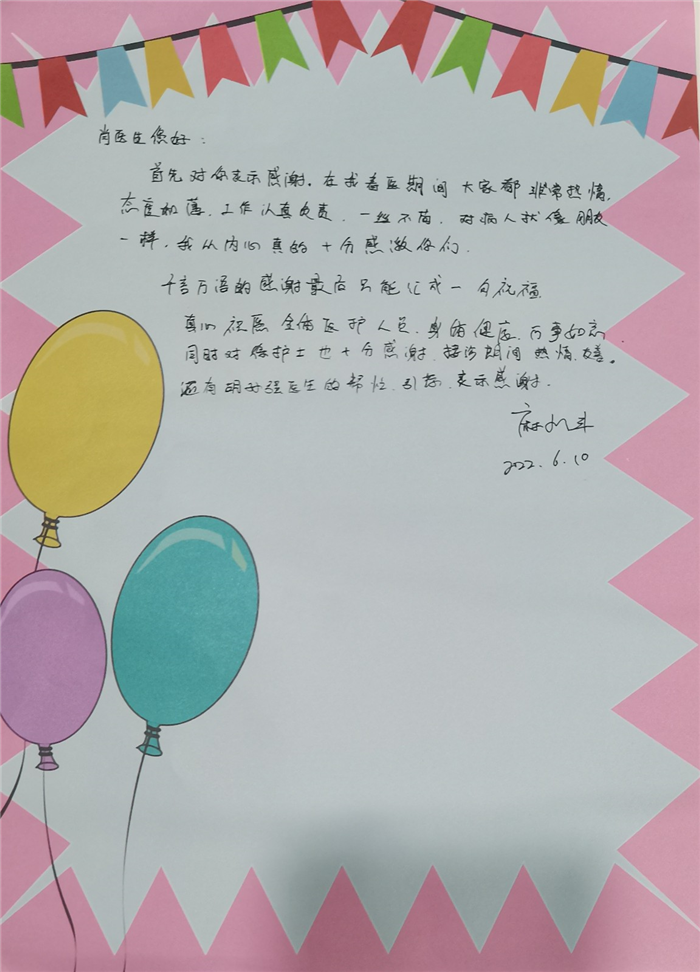 肖医生您好：
首先对你表示感谢。在我看医期间大家都非常热情，
态度和蔼，工作认真负责，一丝不苟，对病人状像朋友
一样，我从内心真的十分感激你们.
千言万语的感谢最后只能汇成一句祝福.
真心祝医全体医护人员，身体健康，万事如意.
同时对您护士也十分感谢，接诊期间热情，友善。
还有胡 医生的帮忙，引荐，表示感谢.
麻
2022.6.10